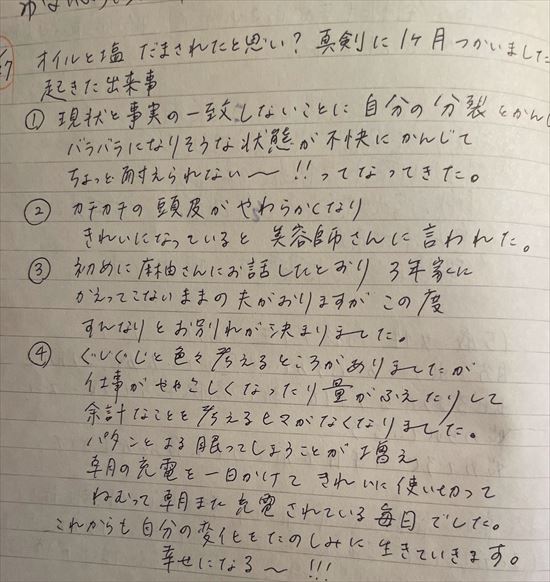 オイルと塩 だまされたと思い? 真剣に1ヶ月つかいました
起きた出来事
① 現状と事実の一致しないことに自分の分裂をかんじ
バラバラになりそうな状態が不快にかんじて
ちょっと耐えられない〜!!ってなってきた。
② カチカチの頭皮がやわらかくなり
きれいになっていると美容師さんに言われた。
③ 初めに麻柚さんにお話したとおり 3年家に
かえってこないままの夫がおりますがこの度
すんなりとお別れが決まりました。
④ ぐじぐじと色々考えるところがありましたが
仕事がややこしくなったり量がふえたりして
余計なことを考えるヒマがなくなりました。
パタンとまる眠ってしまうことが増え
朝の充電を一日かけてきれいに使い切って
ねむって朝また充電されている毎日でした。
これからも自分の変化をたのしみに生きていきます。
幸せになる〜!!!